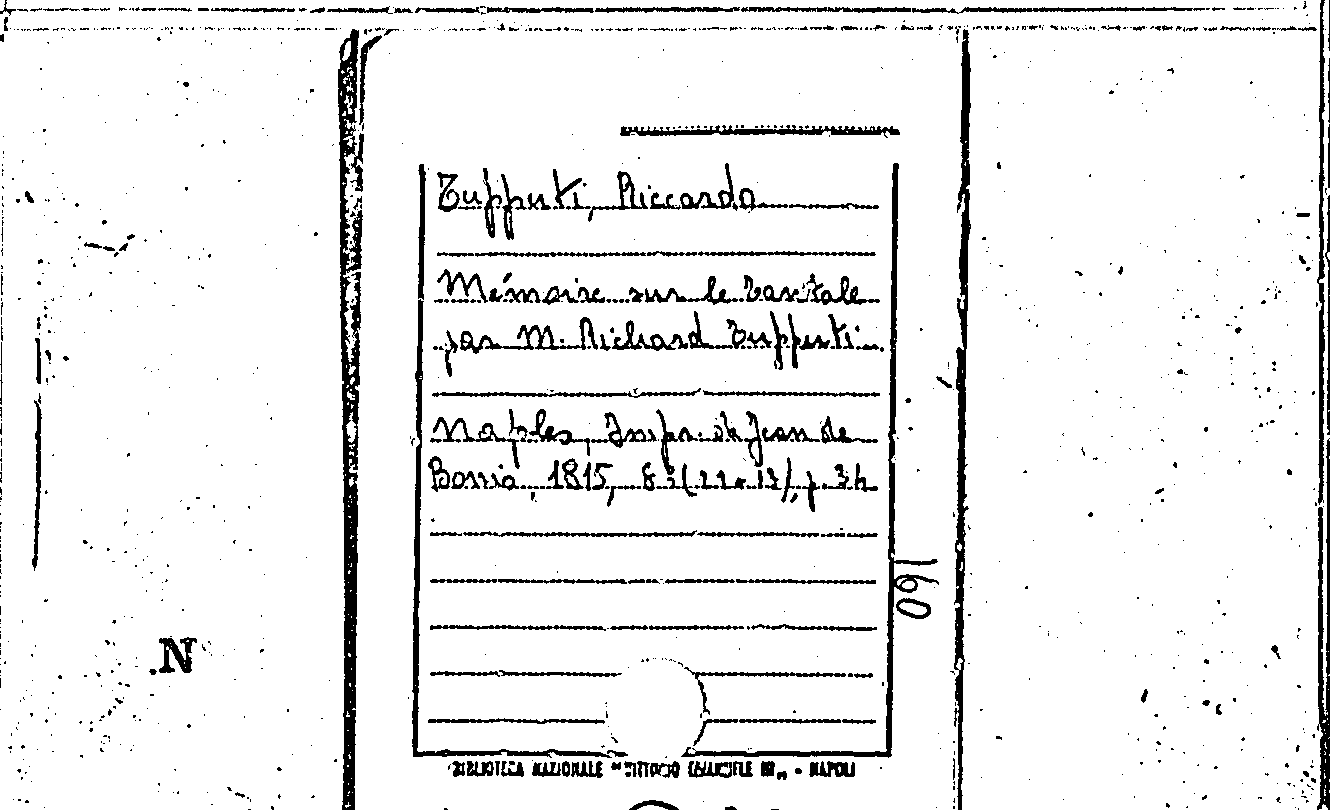 Tupputi, Riccardo
Mémoire sur le Tantale
par M. Richard Tupputi
Naples, Impr. de Jean de
Bonis, 1815, 8º (22 x 13), p. 34
160
.N
BIBLIOTECA NAZIONALE "VITTORIO EMANUELE III" - NAPOLI